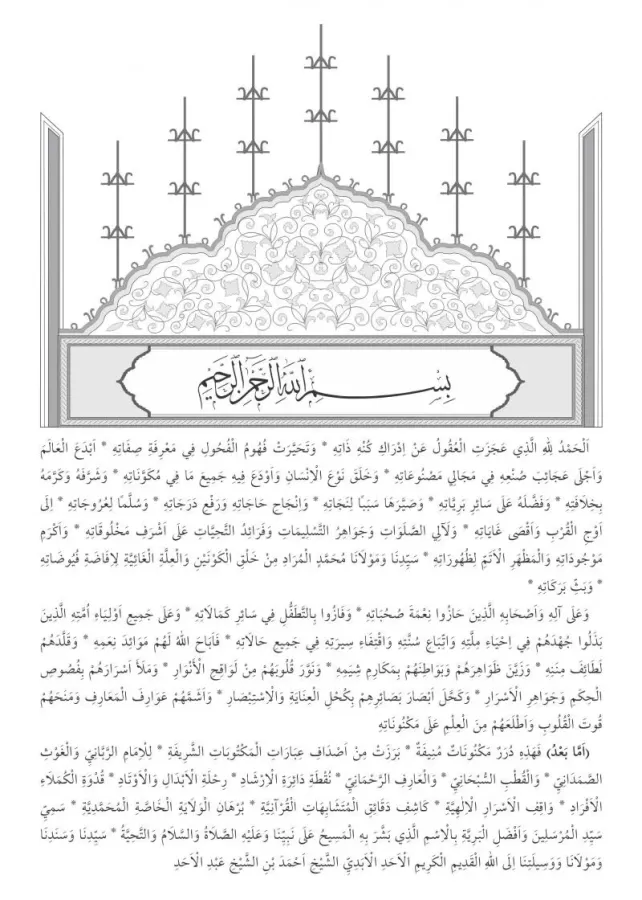 بِسْمِ اللّٰهِ الرَّحْمٰنِ الرَّحِيْمِ
اَلْحَمْدُ لِلّٰهِ الَّذِي عَجَزَتِ الْعُقُولُ عَنْ اِدْرَاكِ كُنْهِ ذَاتِهِ * وَتَحَيَّرَتْ فُهُومُ الْفُحُولِ فِي مَعْرِفَةِ صِفَاتِهِ * اَبْدَعَ الْعَالَمَ
وَاَجْلَى عَجَائِبَ صُنْعِهِ فِي مَجَالِي مَصْنُوعَاتِهِ * وَخَلَقَ نَوْعَ الْاِنْسَانِ وَاَوْدَعَ فِيهِ جَمِيعَ مَا فِي مُكَوَّنَاتِهِ * وَشَرَّفَهُ وَكَرَّمَهُ
بِخِلَافَتِهِ * وَفَضَّلَهُ عَلَى سَائِرِ بَرِيَّاتِهِ * وَصَيَّرَهَا سَبَبًا لِنَجَاتِهِ * وَاِنْجَاحِ حَاجَاتِهِ وَرَفْعِ دَرَجَاتِهِ * وَسُلَّمًا لِعُرُوجَاتِهِ * اِلَى
اَوْجِ الْقُرْبِ وَاَقْصَى غَايَاتِهِ * وَلَآلِي الصَّلَوَاتِ وَجَوَاهِرُ التَّسْلِيمَاتِ وَفَرَائِدُ التَّحِيَّاتِ عَلَى اَشْرَفِ مَخْلُوقَاتِهِ * وَاَكْرَمِ
مَوْجُودَاتِهِ وَالْمَظْهَرِ الْاَتَمِّ لِظُهُورَاتِهِ * سَيِّدِنَا وَمَوْلَانَا مُحَمَّدٍ الْمُرَادِ مِنْ خَلْقِ الْكَوْنَيْنِ وَالْعِلَّةِ الْغَائِيَّةِ لِاِفَاضَةِ فُيُوضَاتِهِ
* وَبَثِّ بَرَكَاتِهِ *
وَعَلَى آلِهِ وَاَصْحَابِهِ الَّذِينَ حَازُوا نِعْمَةَ صُحْبَاتِهِ * وَفَازُوا بِالتَّطَفُّلِ فِي سَائِرِ كَمَالَاتِهِ * وَعَلَى جَمِيعِ اَوْلِيَاءِ اُمَّتِهِ الَّذِينَ
بَذَلُوا جُهْدَهُمْ فِي اِحْيَاءِ مِلَّتِهِ وَاتِّبَاعِ سُنَّتِهِ وَاقْتِفَاءِ سِيرَتِهِ فِي جَمِيعِ حَالَاتِهِ * فَاَبَاحَ اللهُ لَهُمْ مَوَائِدَ نِعَمِهِ * وَقَلَّدَهُمْ
لَطَائِفَ مِنَنِهِ * وَزَيَّنَ ظَوَاهِرَهُمْ وَبَوَاطِنَهُمْ بِمَكَارِمِ شِيَمِهِ * وَنَوَّرَ قُلُوبَهُمْ مِنْ لَوَاقِحِ الْأَنْوَارِ * وَمَلَأَ اَسْرَارَهُمْ بِفُصُوصِ
الْحِكَمِ وَجَوَاهِرِ الْاَسْرَارِ * وَكَحَّلَ اَبْصَارَ بَصَائِرِهِمْ بِكُحْلِ الْعِنَايَةِ وَالْاِسْتِبْصَارِ * وَاَشَمَّهُمْ عَوَارِفَ الْمَعَارِفِ وَمَنَحَهُمْ
قُوتَ الْقُلُوبِ وَاَطْلَعَهُمْ مِنَ الْعِلْمِ عَلَى مَكْنُونَاتِهِ
(اَمَّا بَعْدُ) فَهَذِهِ دُرَرٌ مَكْنُونَاتٌ مُنِيفَةٌ * بَرَزَتْ مِنْ اَصْدَافِ عِبَارَاتِ الْمَكْتُوبَاتِ الشَّرِيفَةِ * لِلْاِمَامِ الرَّبَّانِيِّ وَالْغَوْثِ
الصَّمَدَانِيِّ * وَالْقُطْبِ السُّبْحَانِيِّ * وَالْعَارِفِ الرَّحْمَانِيِّ * نُقْطَةِ دَائِرَةِ الْاِرْشَادِ * رِحْلَةِ الْاَبْدَالِ وَالْاَوْتَادِ * قُدْوَةِ الْكُمَلَاءِ
الْاَفْرَادِ * وَاقِفِ الْاَسْرَارِ الْاِلٰهِيَّةِ * كَاشِفِ دَقَائِقِ الْمُتَشَابِهَاتِ الْقُرْآنِيَّةِ * بُرْهَانِ الْوِلَايَةِ الْخَاصَّةِ الْمُحَمَّدِيَّةِ * سَمِيِّ
سَيِّدِ الْمُرْسَلِينَ وَاَفْضَلِ الْبَرِيَّةِ بِالْاِسْمِ الَّذِي بَشَّرَ بِهِ الْمَسِيحُ عَلَى نَبِيِّنَا وَعَلَيْهِ الصَّلَاةُ وَالسَّلَامُ وَالتَّحِيَّةُ * سَيِّدِنَا وَسَنَدِنَا
وَمَوْلَانَا وَوَسِيلَتِنَا اِلَى اللهِ الْقَدِيمِ الْكَرِيمِ الْاَحَدِ الْاَبَدِيِّ الشَّيْخِ اَحْمَدَ بْنِ الشَّيْخِ عَبْدِ الْاَحَدِ